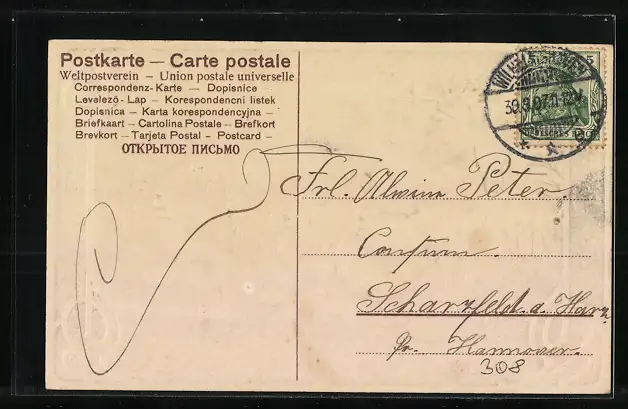 Postkarte — Carte postale
Weltpostverein — Union postale universelle
Correspondenz-Karte — Dopisnice
Levelező-Lap — Korespondencni listek
Dopisnica — Karta korespondencyjna —
Briefkaart — Cartolina Postale — Brefkort
Brevkort — Tarjeta Postal — Postcard —
ОТКРЫТОЕ ПИСЬМО
30.9.07.11-12V.
DEUTSCHES REICH
Frl. Alwine Peter.
Consum.
Scharzfeld a. Harz
Pr. Hannover.
308